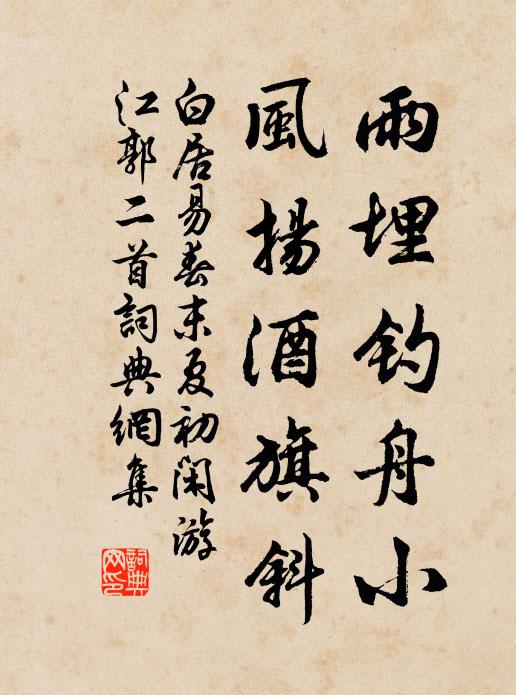 雨埋钓舟小
風揚酒旗斜
白居易春末夏初闲游
江郭二首詞典網集
詞典网印